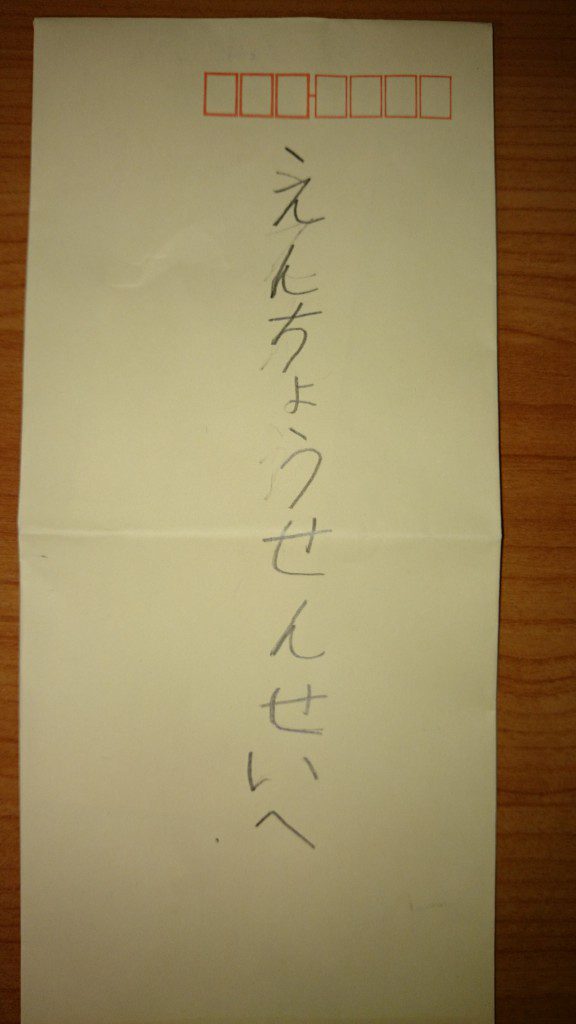 えんちょうせんせいへ